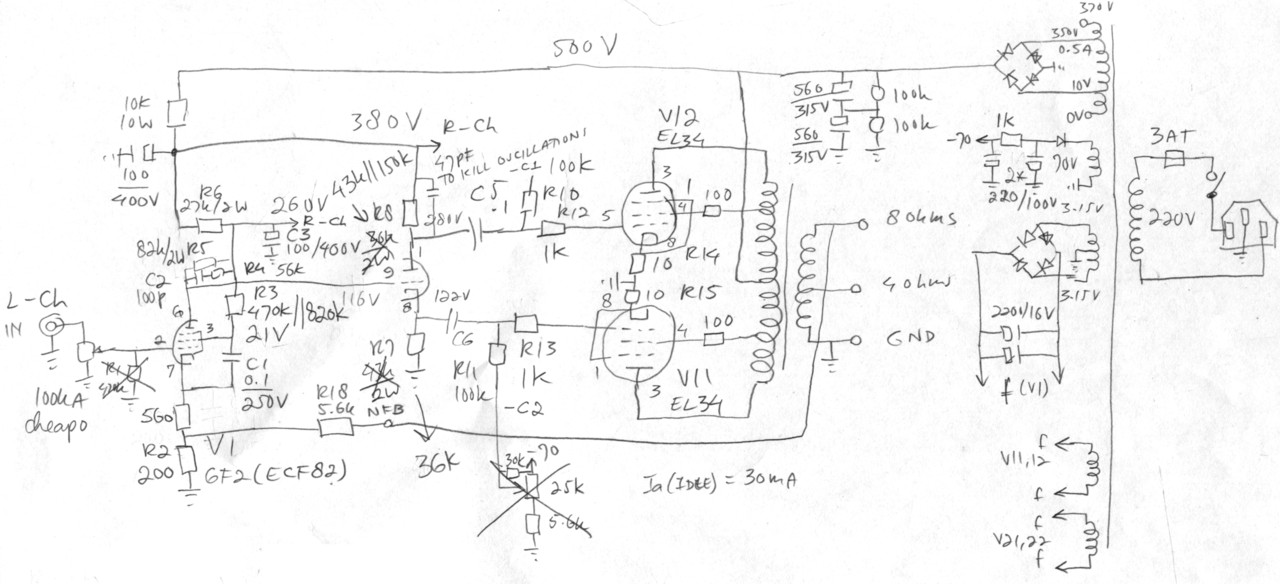 500V
370V
350V
0.5A
10V
0V
10K
10W
380V
R-Ch
47pf
TO KILL OSCILLATIONS
43k//150k
100
400V
R6
27k/2W
260V
R-Ch
C3
100/400V
R8
36k
2W
280V
C5
.1
-C1
100k
R10
R12
1K
V12
EL34
5
3
1
4
8
100
10
R14
.11
8
10
R15
4
100
1
3
V11
EL34
560
315V
560
315V
100k
100k
-70
1k
70V
2x
220/100V
3.15V
3.15V
2200/16V
f (V1)
3AT
220V
8 ohms
4 ohms
GND
82k/2W
R5
C2
100p
R4
56k
R3
470k//820k
21V
116V
9
1
8
122V
C6
R13
1K
R11
100k
-C2
L-Ch
IN
100kA
cheapo
6
2
3
7
C1
0.1
250V
560
R2
200
V1
6F2(ECF82)
R18
5.6k
R7
2W
NFB
36k
30k
-70
25k
5.6k
Ia(IDLE) = 30mA
f
V11,12
f
f
V21,22
f